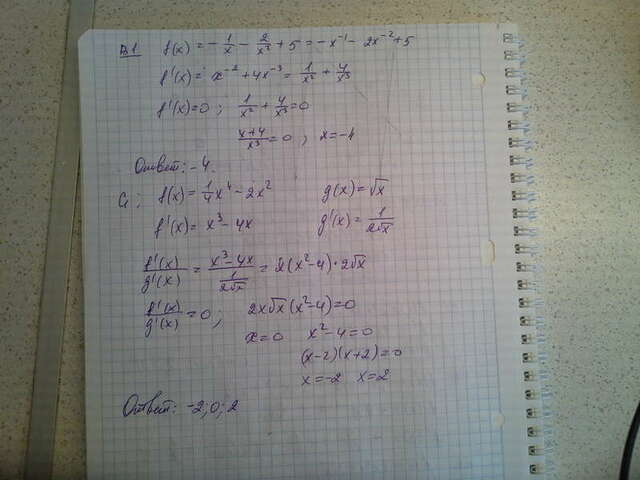 B1 f(x) = -1/x - 2/x² + 5 = -x⁻¹ - 2x⁻² + 5
f'(x) = x⁻² + 4x⁻³ = 1/x² + 4/x³
f'(x) = 0 ; 1/x² + 4/x³ = 0
(x+4)/x³ = 0 ; x = -4
Ответ: -4.
C1; f(x) = 1/4 x⁴ - 2x² g(x) = √x
f'(x) = x³ - 4x g'(x) = 1/(2√x)
f'(x)/g'(x) = (x³ - 4x)/(1/(2√x)) = x(x² - 4) · 2√x
f'(x)/g'(x) = 0 ; 2x√x (x² - 4) = 0
x = 0 x² - 4 = 0
(x - 2)(x + 2) = 0
x = -2 x = 2
Ответ: -2; 0; 2